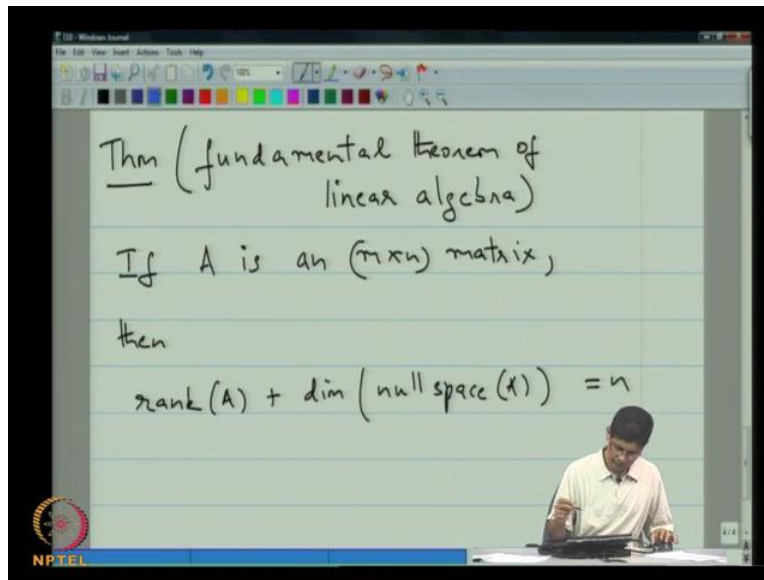 150 - Windows Journal
File Edit View Insert Actions Tools Help
100%
B I
Thm (fundamental theorem of
linear algebra)
If A is an (m×n) matrix,
then
rank(A) + dim (null space(A)) = n
4/4
NPTEL